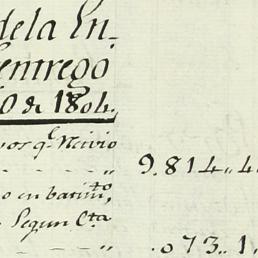 dela En-
entregó
0 de 1804.
vos q.e recivio
- - - - „ 9.814„4
o en batim.to
Segun C.ta
- - - „ .073„1